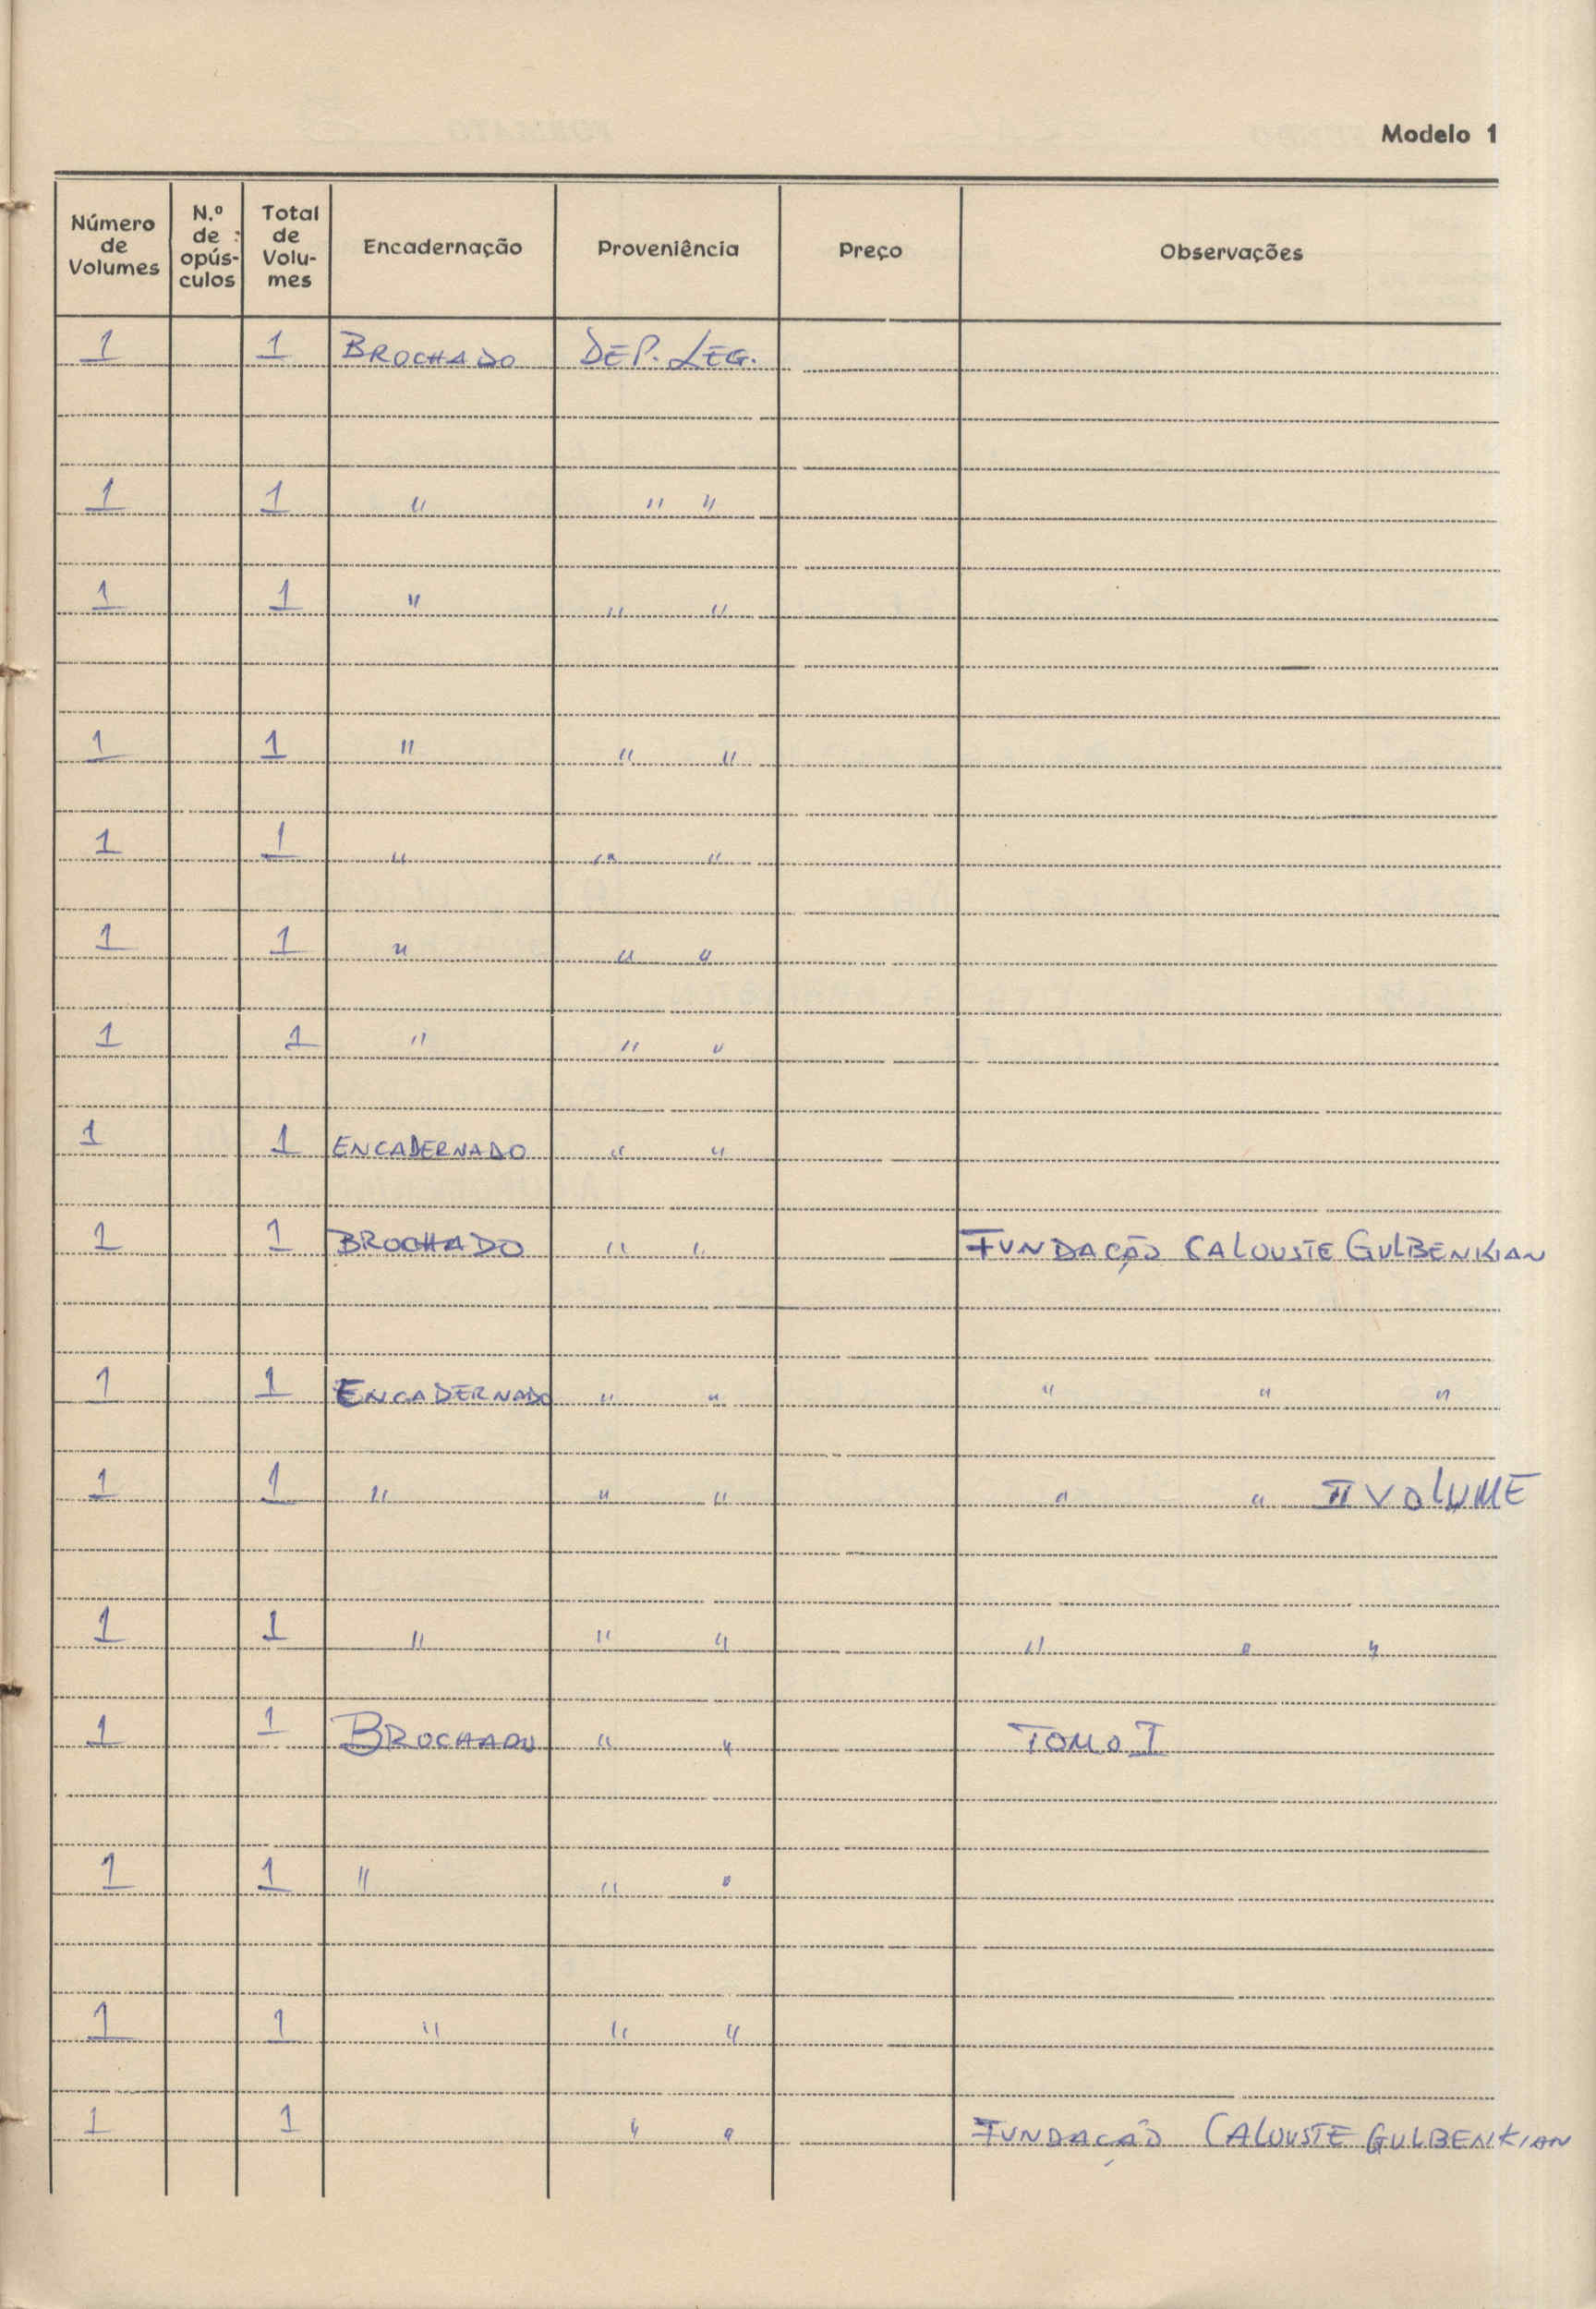 Modelo 1
Número de Volumes N.º de opúsculos Total de Volumes Encadernação Proveniência Preço Observações
1 1 BROCHADO DEP. LEG.
1 1 " " "
1 1 " " "
1 1 " " "
1 1 " " "
1 1 " " "
1 1 " " "
1 1 ENCADERNADO " "
1 1 BROCHADO " " FUNDAÇÃO CALOUSTE GULBENKIAN
1 1 ENCADERNADO " " " " "
1 1 " " " " " II VOLUME
1 1 " " " " " "
1 1 BROCHADO " " TOMO I
1 1 " " "
1 1 " " "
1 1 " " FUNDAÇÃO CALOUSTE GULBENKIAN